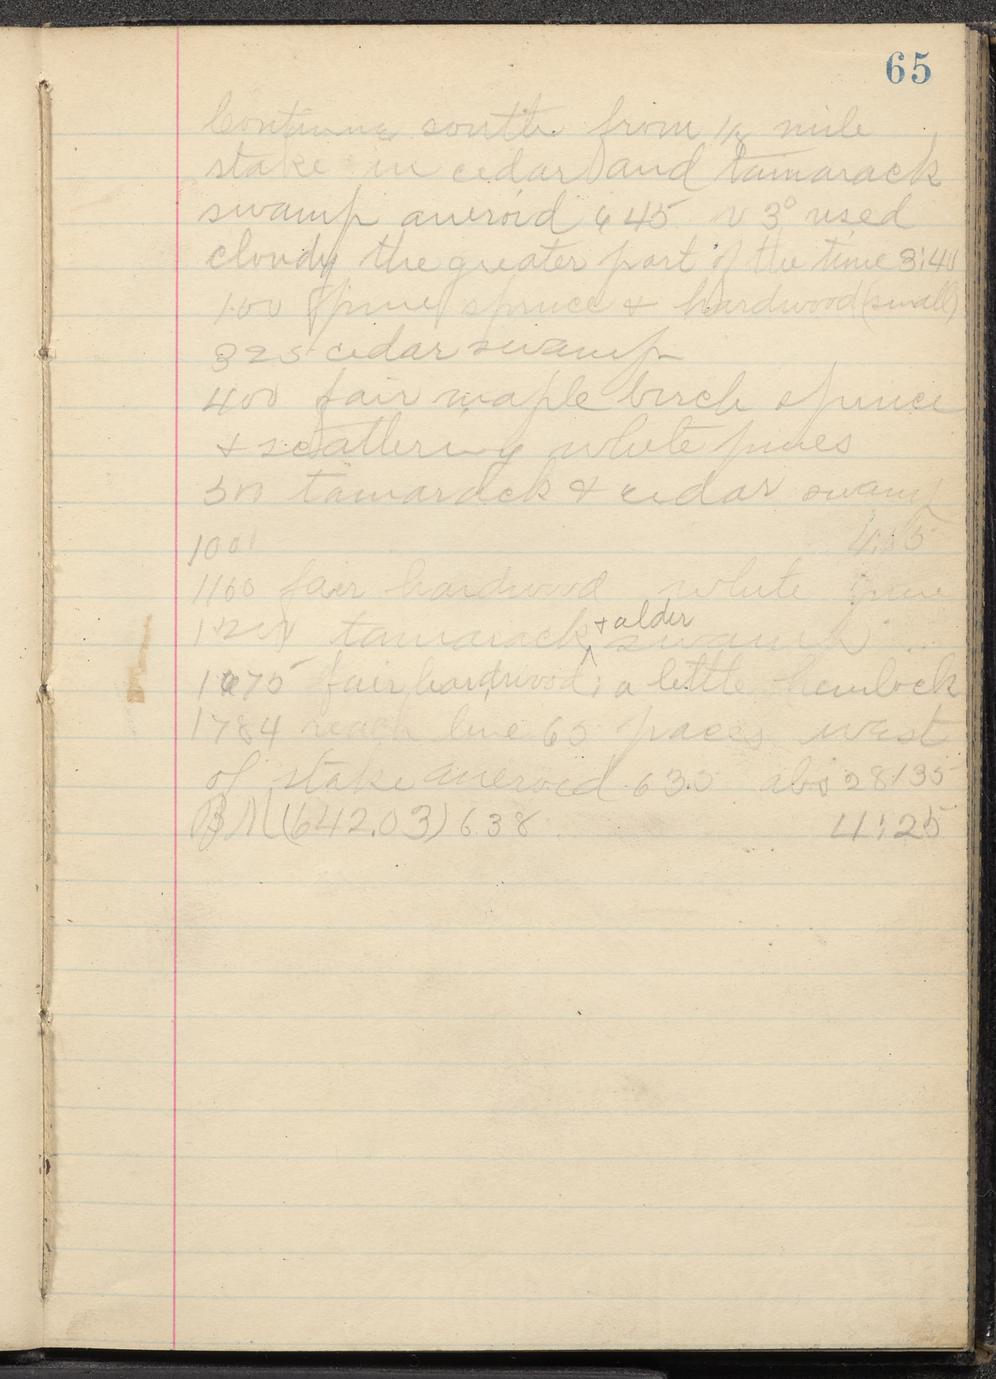 65
Continue south from 1/2 mile
stake in cedar and tamarack
swamp aneroid 645 v 3° used
cloudy the greater part of the time 3:40
100 pine spruce & hardwood (small)
325 cedar swamp
400 fair maple birch spruce
& scattering white pines
500 tamarack & cedar swamp
1001
1160 fair hardwood white pine
tamarack & alder swamp
fair hardwood; a little hemlock
1784 reach line 60 paces west
of stake aneroid 630 abs 28135
BM (642.03) 638